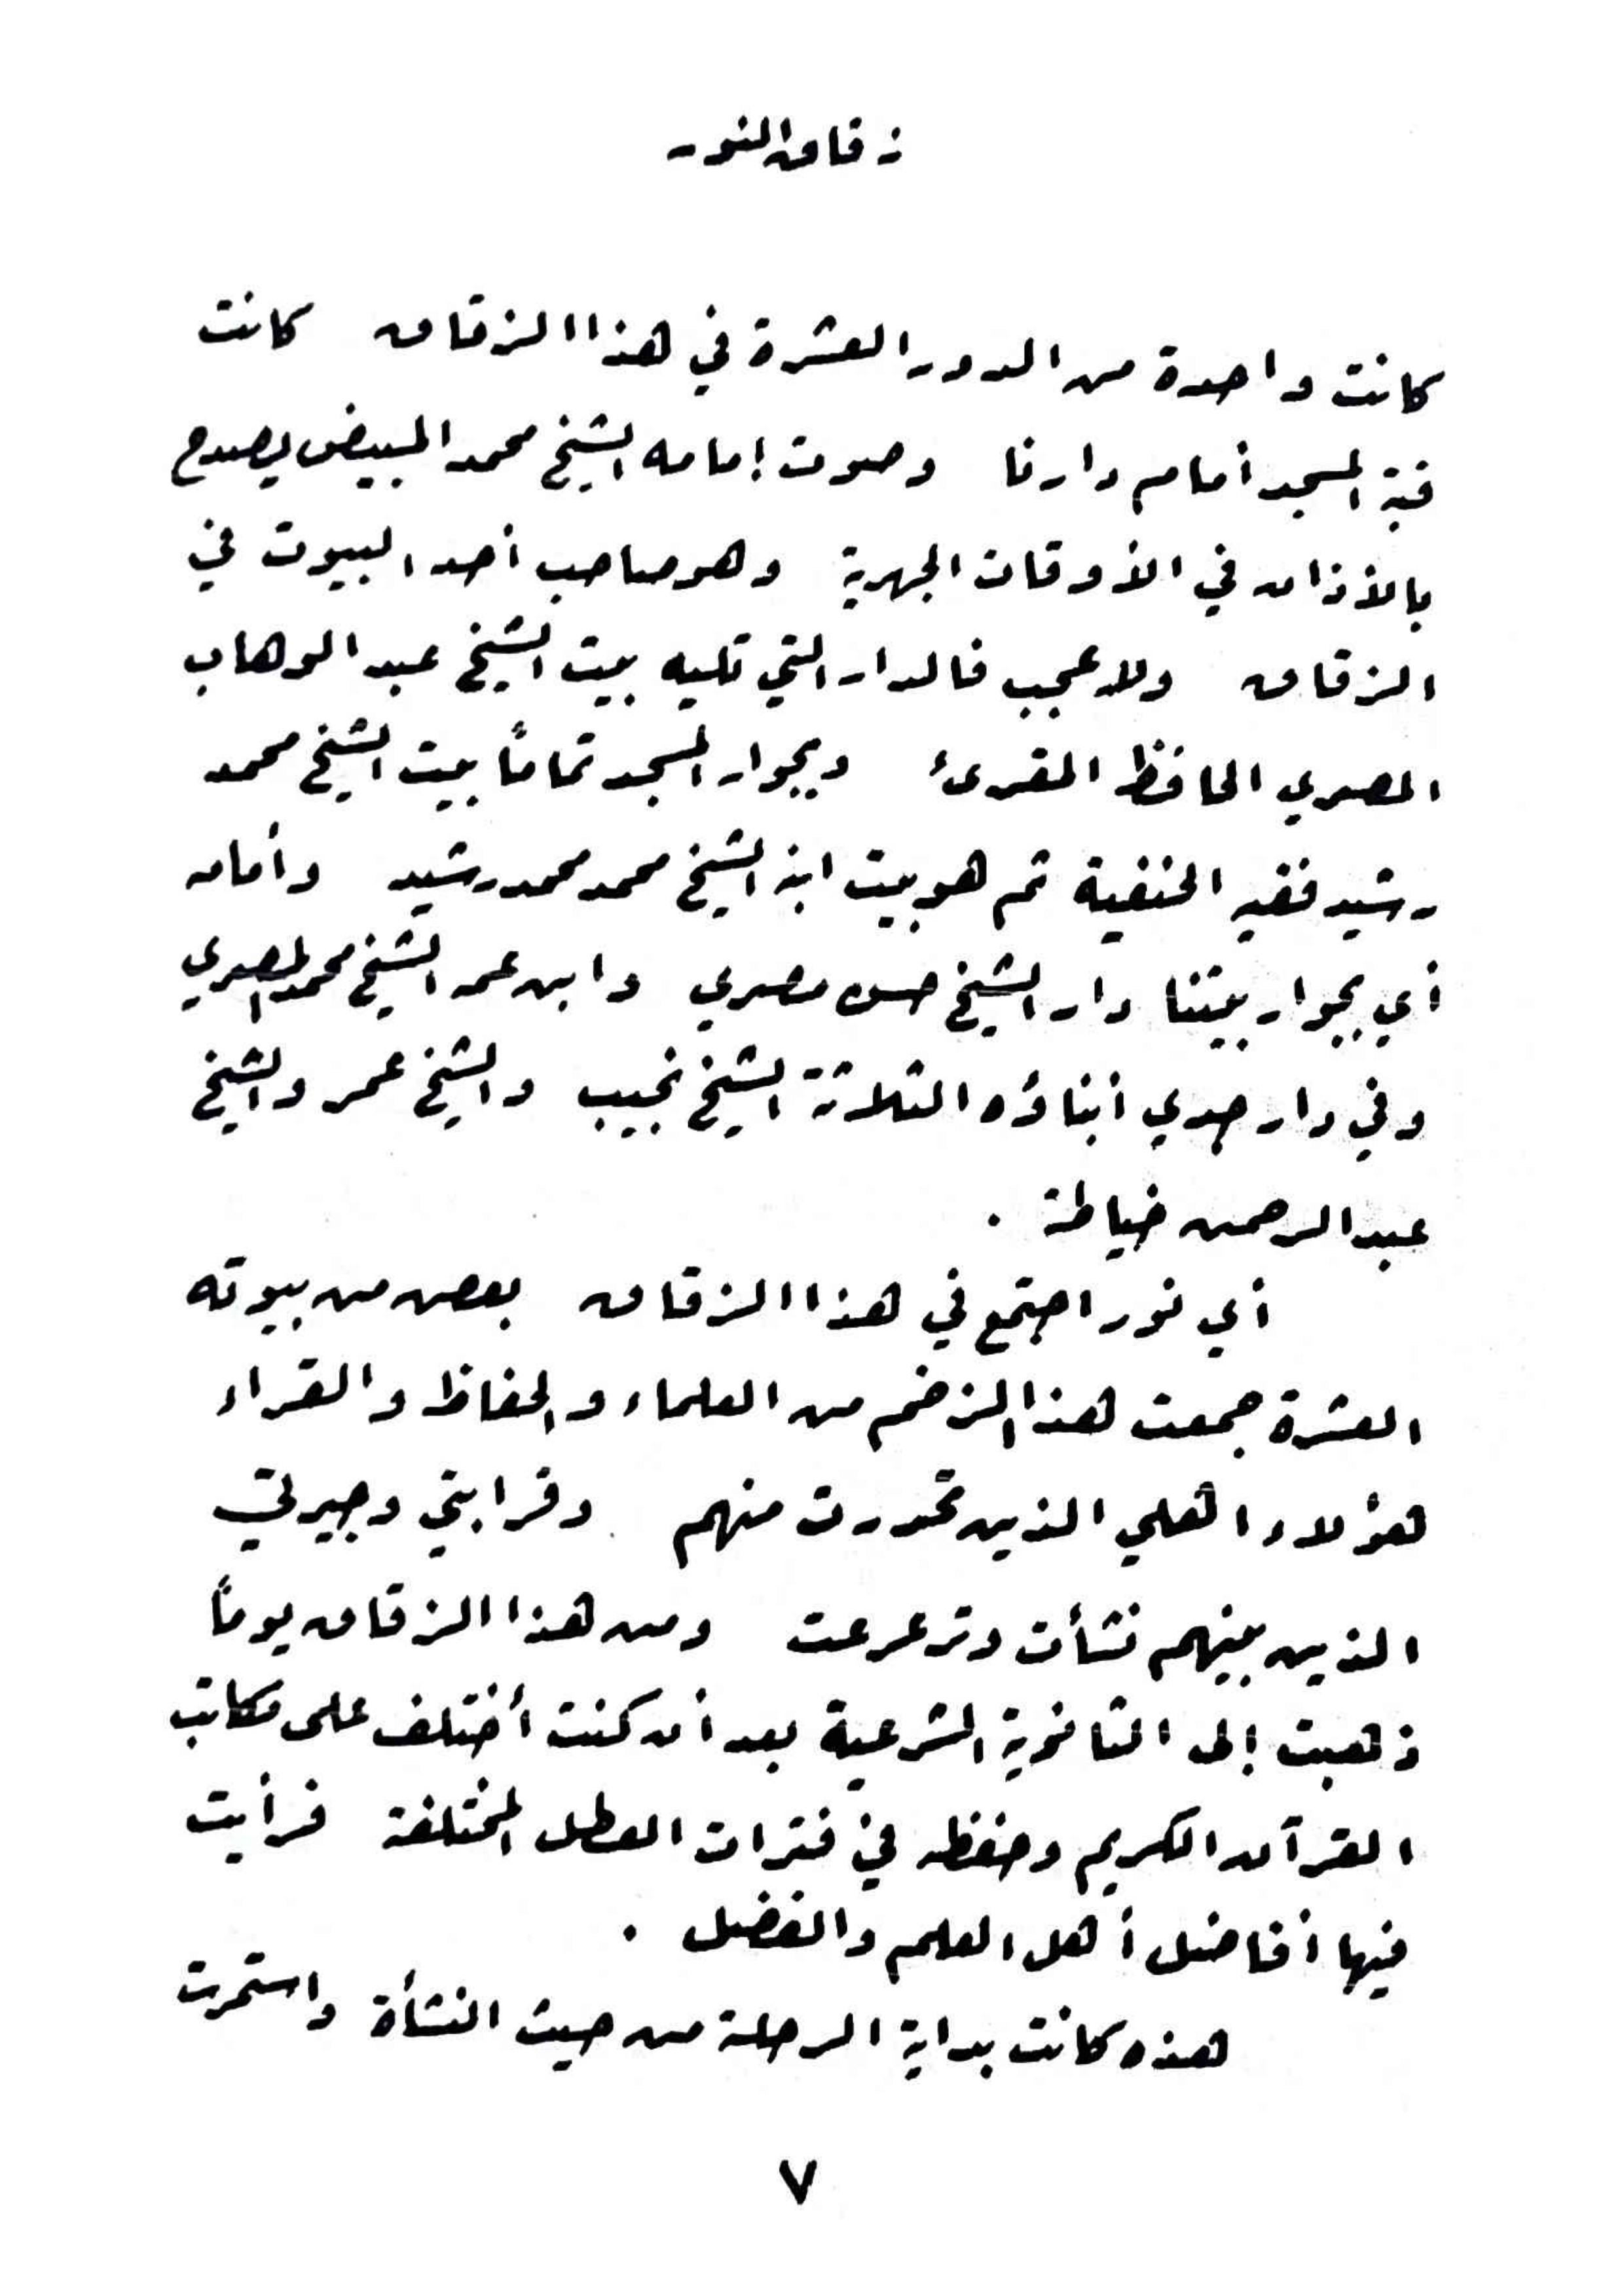 زقاق النور
كانت واحدة من الدور العشرة في هذا الزقاق كانت
قبة المسجد أمام دارنا وصوت إمامه الشيخ محمد المبيض يصدح
بالأذان في الأوقات الجهرية وهو صاحب أحد البيوت في
الزقاق ولا عجب فالدار التي تليه بيت الشيخ عبد الوهاب
المصري الحافظ المقرئ وبجوار المسجد تماماً بيت الشيخ محمد
رشيد فقيه الحنفية ثم هو بيت ابنه الشيخ محمد محمد رشيد وأمامه
أي بجوار بيتنا دار الشيخ حسن مصري وابن عمه الشيخ محمد المصري
وفي دار جدي أبناؤه الثلاثة الشيخ نجيب والشيخ عمر والشيخ
عبد الرحمن خياطة .
أي نور اجتمع في هذا الزقاق بعض من بيوته
العشرة جمعت هذا الزخم من العلماء والحفاظ والقراء
هؤلاء أهلي الذين تحدرت منهم وقرابتي وجيرتي
الذين بينهم نشأت وترعرعت ومن هذا الزقاق يوماً
ذهبت إلى الثانوية الشرعية بعد أن كنت أختلف على مكاتب
القرآن الكريم وحفظه في فترات العطل المختلفة فرأيت
فيها أفاضل أهل العلم والفضل .
هذه كانت بداية الرحلة من حيث النشأة واستمرت
٧